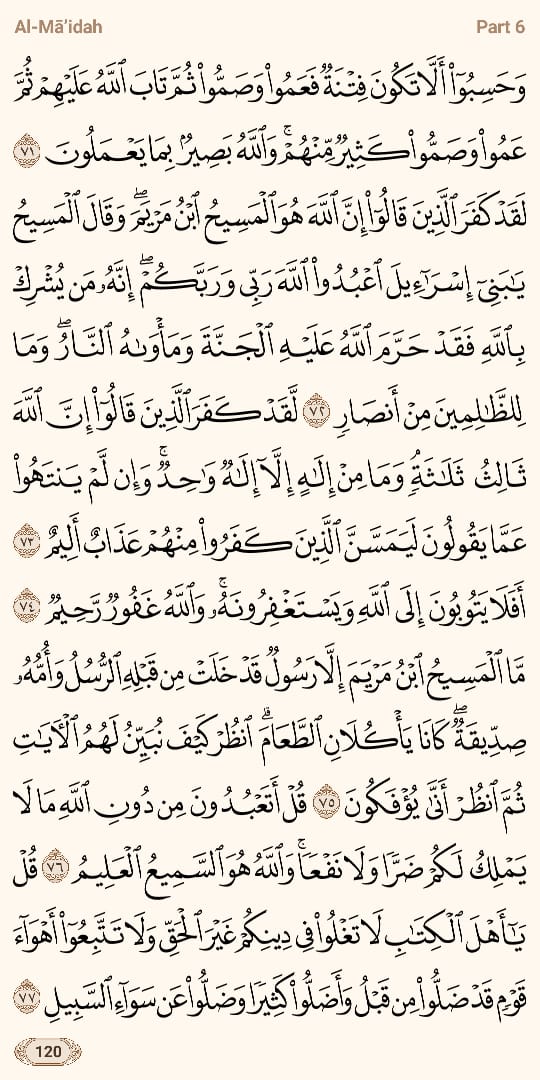 Al-Mā'idah
Part 6
وَحَسِبُوٓا۟ أَلَّا تَكُونَ فِتْنَةٌ فَعَمُوا۟ وَصَمُّوا۟ ثُمَّ تَابَ ٱللَّهُ عَلَيْهِمْ ثُمَّ
عَمُوا۟ وَصَمُّوا۟ كَثِيرٌ مِّنْهُمْ ۚ وَٱللَّهُ بَصِيرٌۢ بِمَا يَعْمَلُونَ ٧١
لَقَدْ كَفَرَ ٱلَّذِينَ قَالُوٓا۟ إِنَّ ٱللَّهَ هُوَ ٱلْمَسِيحُ ٱبْنُ مَرْيَمَ ۖ وَقَالَ ٱلْمَسِيحُ
يَـٰبَنِىٓ إِسْرَٰٓءِيلَ ٱعْبُدُوا۟ ٱللَّهَ رَبِّى وَرَبَّكُمْ ۖ إِنَّهُۥ مَن يُشْرِكْ
بِٱللَّهِ فَقَدْ حَرَّمَ ٱللَّهُ عَلَيْهِ ٱلْجَنَّةَ وَمَأْوَىٰهُ ٱلنَّارُ ۖ وَمَا
لِلظَّـٰلِمِينَ مِنْ أَنصَارٍ ٧٢ لَّقَدْ كَفَرَ ٱلَّذِينَ قَالُوٓا۟ إِنَّ ٱللَّهَ
ثَالِثُ ثَلَـٰثَةٍ ۘ وَمَا مِنْ إِلَـٰهٍ إِلَّآ إِلَـٰهٌ وَٰحِدٌ ۚ وَإِن لَّمْ يَنتَهُوا۟
عَمَّا يَقُولُونَ لَيَمَسَّنَّ ٱلَّذِينَ كَفَرُوا۟ مِنْهُمْ عَذَابٌ أَلِيمٌ ٧٣
أَفَلَا يَتُوبُونَ إِلَى ٱللَّهِ وَيَسْتَغْفِرُونَهُۥ ۚ وَٱللَّهُ غَفُورٌ رَّحِيمٌ ٧٤
مَّا ٱلْمَسِيحُ ٱبْنُ مَرْيَمَ إِلَّا رَسُولٌ قَدْ خَلَتْ مِن قَبْلِهِ ٱلرُّسُلُ وَأُمُّهُۥ
صِدِّيقَةٌ ۖ كَانَا يَأْكُلَانِ ٱلطَّعَامَ ۗ ٱنظُرْ كَيْفَ نُبَيِّنُ لَهُمُ ٱلْـَٔايَـٰتِ
ثُمَّ ٱنظُرْ أَنَّىٰ يُؤْفَكُونَ ٧٥ قُلْ أَتَعْبُدُونَ مِن دُونِ ٱللَّهِ مَا لَا
يَمْلِكُ لَكُمْ ضَرًّا وَلَا نَفْعًا ۚ وَٱللَّهُ هُوَ ٱلسَّمِيعُ ٱلْعَلِيمُ ٧٦ قُلْ
يَـٰٓأَهْلَ ٱلْكِتَـٰبِ لَا تَغْلُوا۟ فِى دِينِكُمْ غَيْرَ ٱلْحَقِّ وَلَا تَتَّبِعُوٓا۟ أَهْوَآءَ
قَوْمٍ قَدْ ضَلُّوا۟ مِن قَبْلُ وَأَضَلُّوا۟ كَثِيرًا وَضَلُّوا۟ عَن سَوَآءِ ٱلسَّبِيلِ ٧٧
120